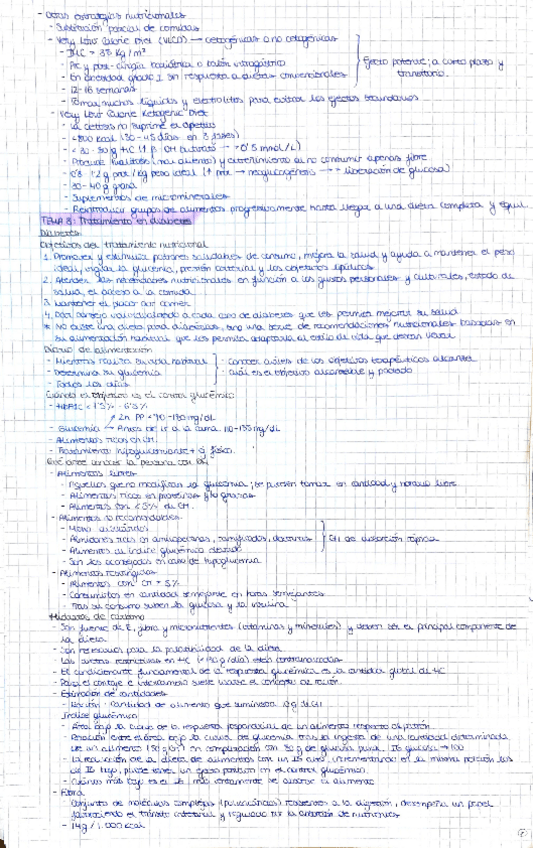 - Otras estrategias nutricionales
- Sustitución parcial de comidas
- Very Low Calorie Diet (VLCD) → cetogénicas o no cetogénicas
- Pre y post-cirugía bariátrica o balón intragástrico
- En obesidad grado I sin respuesta a dietas convencionales
Efecto potente; a corto plazo y transitorio.
- 12-16 semanas
- Tomar muchos líquidos y electrolitos para evitar los efectos secundarios
- Very Low Calorie Ketogenic Diet
- La cetosis suprime el apetito
- <800 kcal (30-45 días en 3 fases)
- Produce halitosis (mal aliento) y estreñimiento al no consumir apenas fibre
- 30-40 g grasa
- Suplementos de microminerales
- Reintroducir grupos de alimentos progresivamente hasta llegar a una dieta completa y equil.
TEMA 8: Tratamiento en diabetes
Diabetes
Objetivos del tratamiento nutricional
1. Promover y estimular patrones saludables de consumo, mejora la salud y ayuda a mantener el peso
ideal, vigilar la glucemia, presión arterial y los objetivos lipídicos
2. Atender las necesidades nutricionales en función a los gustos personales y culturales, estado de
salud, el acceso a la comida
3. Mantener el placer por comer
4. Dar consejo individualizado a cada caso de diabetes que les permita mejorar su salud
* No existe una dieta para diabéticos, sino una serie de recomendaciones nutricionales basadas en
su alimentación habitual que les permita adaptarla al estilo de vida que deben llevar
Diario de alimentación
- Mientras realiza su vida habitual
- Determina su glucemia
- Todos los días
- conocer cuáles de los objetivos terapéuticos alcanza
- cuál es el objetivo alcanzable y pactado
Cuándo el objetivo es el control glucémico
- Glucemia
2h PP
Antes de ir a la cama 110-135 mg/dL
- Alimentos ricos en CH.
- Tratamiento hipoglucemiante + ej físico.
Qué debe conocer la persona con DM
- Alimentos libres
- Aquellos que no modifican la glucemia, se pueden tomar en cantidad y horario libre
- Alimentos ricos en proteínas y/o grasas
- Alimentos con <5% de CH.
- Alimentos no recomendados
- Mono disacáridos
- Almidones ricos en amilopectinas, ramificados, dextrinas
CH de absorción rápida
- Alimentos de índice glucémico elevado
- Son los aconsejados en caso de hipoglucemia
- Alimentos restringidos
- Alimentos con CH > 5%
- Consumirlos en cantidad semejante en horas semejantes
- Tras su consumo suben la glucosa y la insulina
Hidratos de carbono
- Son fuente de E, fibra y micronutrientes (vitaminas y minerales) y deben ser el principal componente de
la dieta.
- Son necesarios para la palatabilidad de la dieta
- Las dietas restrictivas en HC (<130 g/día) están contraindicadas
- El condicionante fundamental de la respuesta glucémica es la cantidad global de HC
- Para el contaje e intercambio suele usarse el concepto de ración.
- Estimación de cantidades
- Ración: Cantidad de alimento que suministra 10g de CH
- Índice glucémico
- Área bajo la curva de la respuesta posprandial de un alimento respecto al patrón
- Relación entre el área bajo la curva de glucemia tras la ingesta de una cantidad determinada
de un alimento (50 g CH) en comparación con 50 g de glucosa pura. IG glucosa → 100
de IG bajo, puede tener un efecto positivo en el control glucémico.
- Fibra
- Conjunto de moléculas complejas (polisacáridos) resistentes a la digestión, desempeña un papel
favoreciendo el tránsito intestinal y regulando la absorción de nutrientes
- 14g / 1.000 kcal